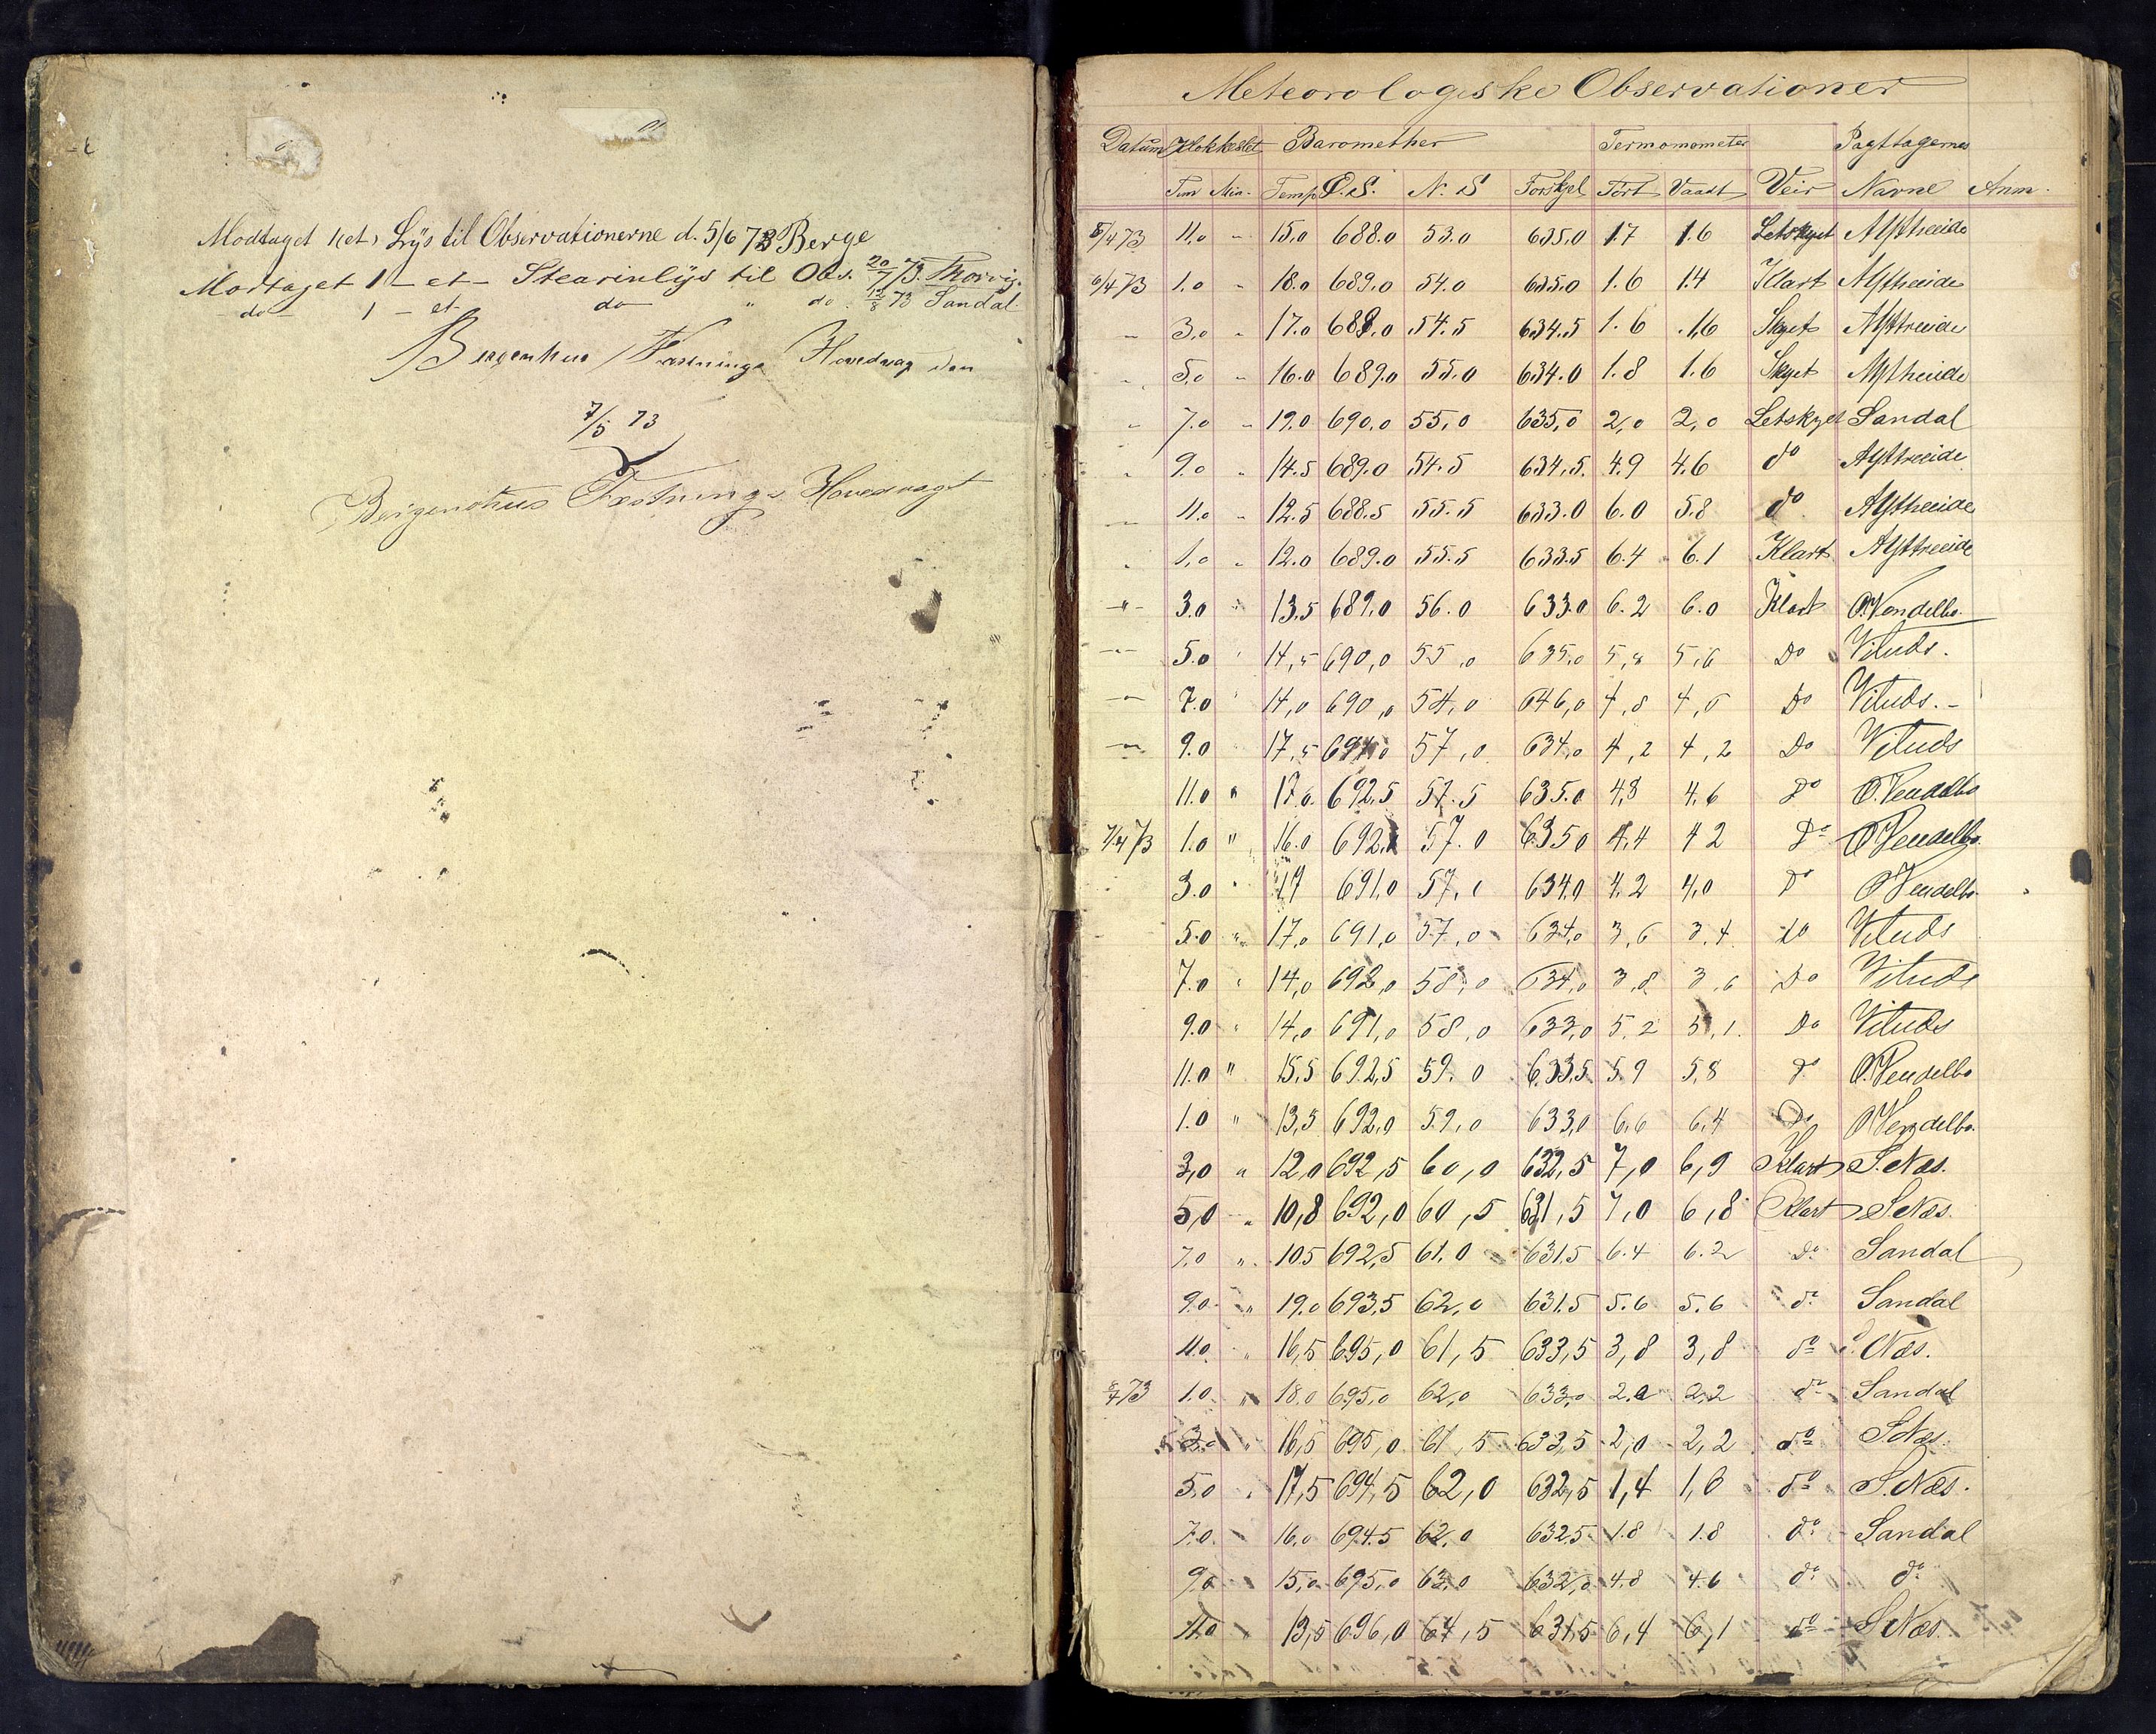 Modtaget 1 (et) Lÿs til Observationerne d. 5/6 73 Berge
Modtaget 1 - et - Stearinlÿs til Obs. 20/7 73.
do 1 - et do " do. 12/8 73 Sandal
Bergenhus Fæstnings Hovedvagt den
7/5 73
Bergenshus Fæstnings Hovedvagt
Meteorologiske Observationer
Datum Klokkeslet Baromether Termomometer Pagttagernes
Tim Min. Temp O.S. N.S Forskjel Tört Vaadt Veir Navne Anm.
5/4 73 11.0 " 15.0 688.0 53.0 635.0 1.7 1.6 Letskyet
6/4 73 1.0 " 18.0 689.0 54.0 635.0 1.6 1.4 Klart
" 3.0 " 17.0 689.0 54.5 634.5 1.6 1.6 Skyet
" 5.0 " 16.0 689.0 55.0 634.0 1.8 1.6 Skyet
" 7.0 " 19.0 690,0 55,0 635,0 2,0 2,0 Letskyet Sandal
" 9.0 " 14.5 689.0 54.5 634.5. 4.9 4.6 do
" 11.0 " 12.5 688.5 55.5 633.0 6.0 5.8 do
" 1.0 " 12.0 689.0 55.5 633.5 6.4 6.1 Klart
" 3.0 " 13,5 689,0 56.0 633.0 6.2 6.0 Klart O.Vendelbo.
" 5.0 " 14,5 690,0 55,0 635,0 5,8 5,6 Do Vituds.
" 7.0 " 14,0 690,0 54,0 646,0 4,8 4,6 Do Vituds. -
" 9.0 17,5 691,0 57,0 634,0 4,2 4,2 Do Vituds
11.0 " 17.0. 692,5 57.5 635.0 4,8 4.6 Do O.Vendelbo
7/4 73 1.0 " 16.0 692, 57.0 635 0 4,4 4 2 Do O Vendelbo.
3.0 " 17 691.0 57, 634,0 4.2 4,0 Do O Vendelbo.
5.0 " 17,0 691,0 57,0 634,0 3,6 3,4 do Vituds
7.0 " 14,0 692,0 58,0 634,0 3,8 3,6 Do Vituds
9.0 " 14,0 691,0 58,0 633,0 5,2 5,1. Do Vituds
11.0 " 15,5 692,5 59.0 633,5 5.9 5,8 do O.Vendelbo
1.0 " 13,5 692,0 59,0 633,0 6,6 6,4 Do O Vendelbo.
3,0 " 12,0 692,5 60,0 632,5 7,0 6,9 Klart S.Næs.
5,0 " 10,8 692,0 60,5 631,5 7,0 6,8 Klart S.Næs.
7,0 " 10.5 692,5 61.0 631.5 6.4 6.2 do Sandal
9.0 " 19.0 693,5 62,0 631.5 5.6 5.6 do Sandal
11.0 " 16,5 695,0 61,5 633,5 3,8 3,8 do S. Næs.
8/4 73 1.0 " 18.0 695,0 62,0 633,0 2.2 2,2 do Sandal
3.0 " 16,5 695,0 61,5 633,5 2,0 2,2 do S.Næs.
5.0 " 17,5 694,5 62,0 632,5 1,4 1,6 do S.Næs.
7.0. " 16,0 694.5 62,0 632.5 1.8 1.8 do Sandal
9.0 " 15,0 695,0 63,0 632,0 4,8 4.6 do do
11.0 " 13,5 696,0 64,5 631,5 6,4 6,1 do S.Næs.